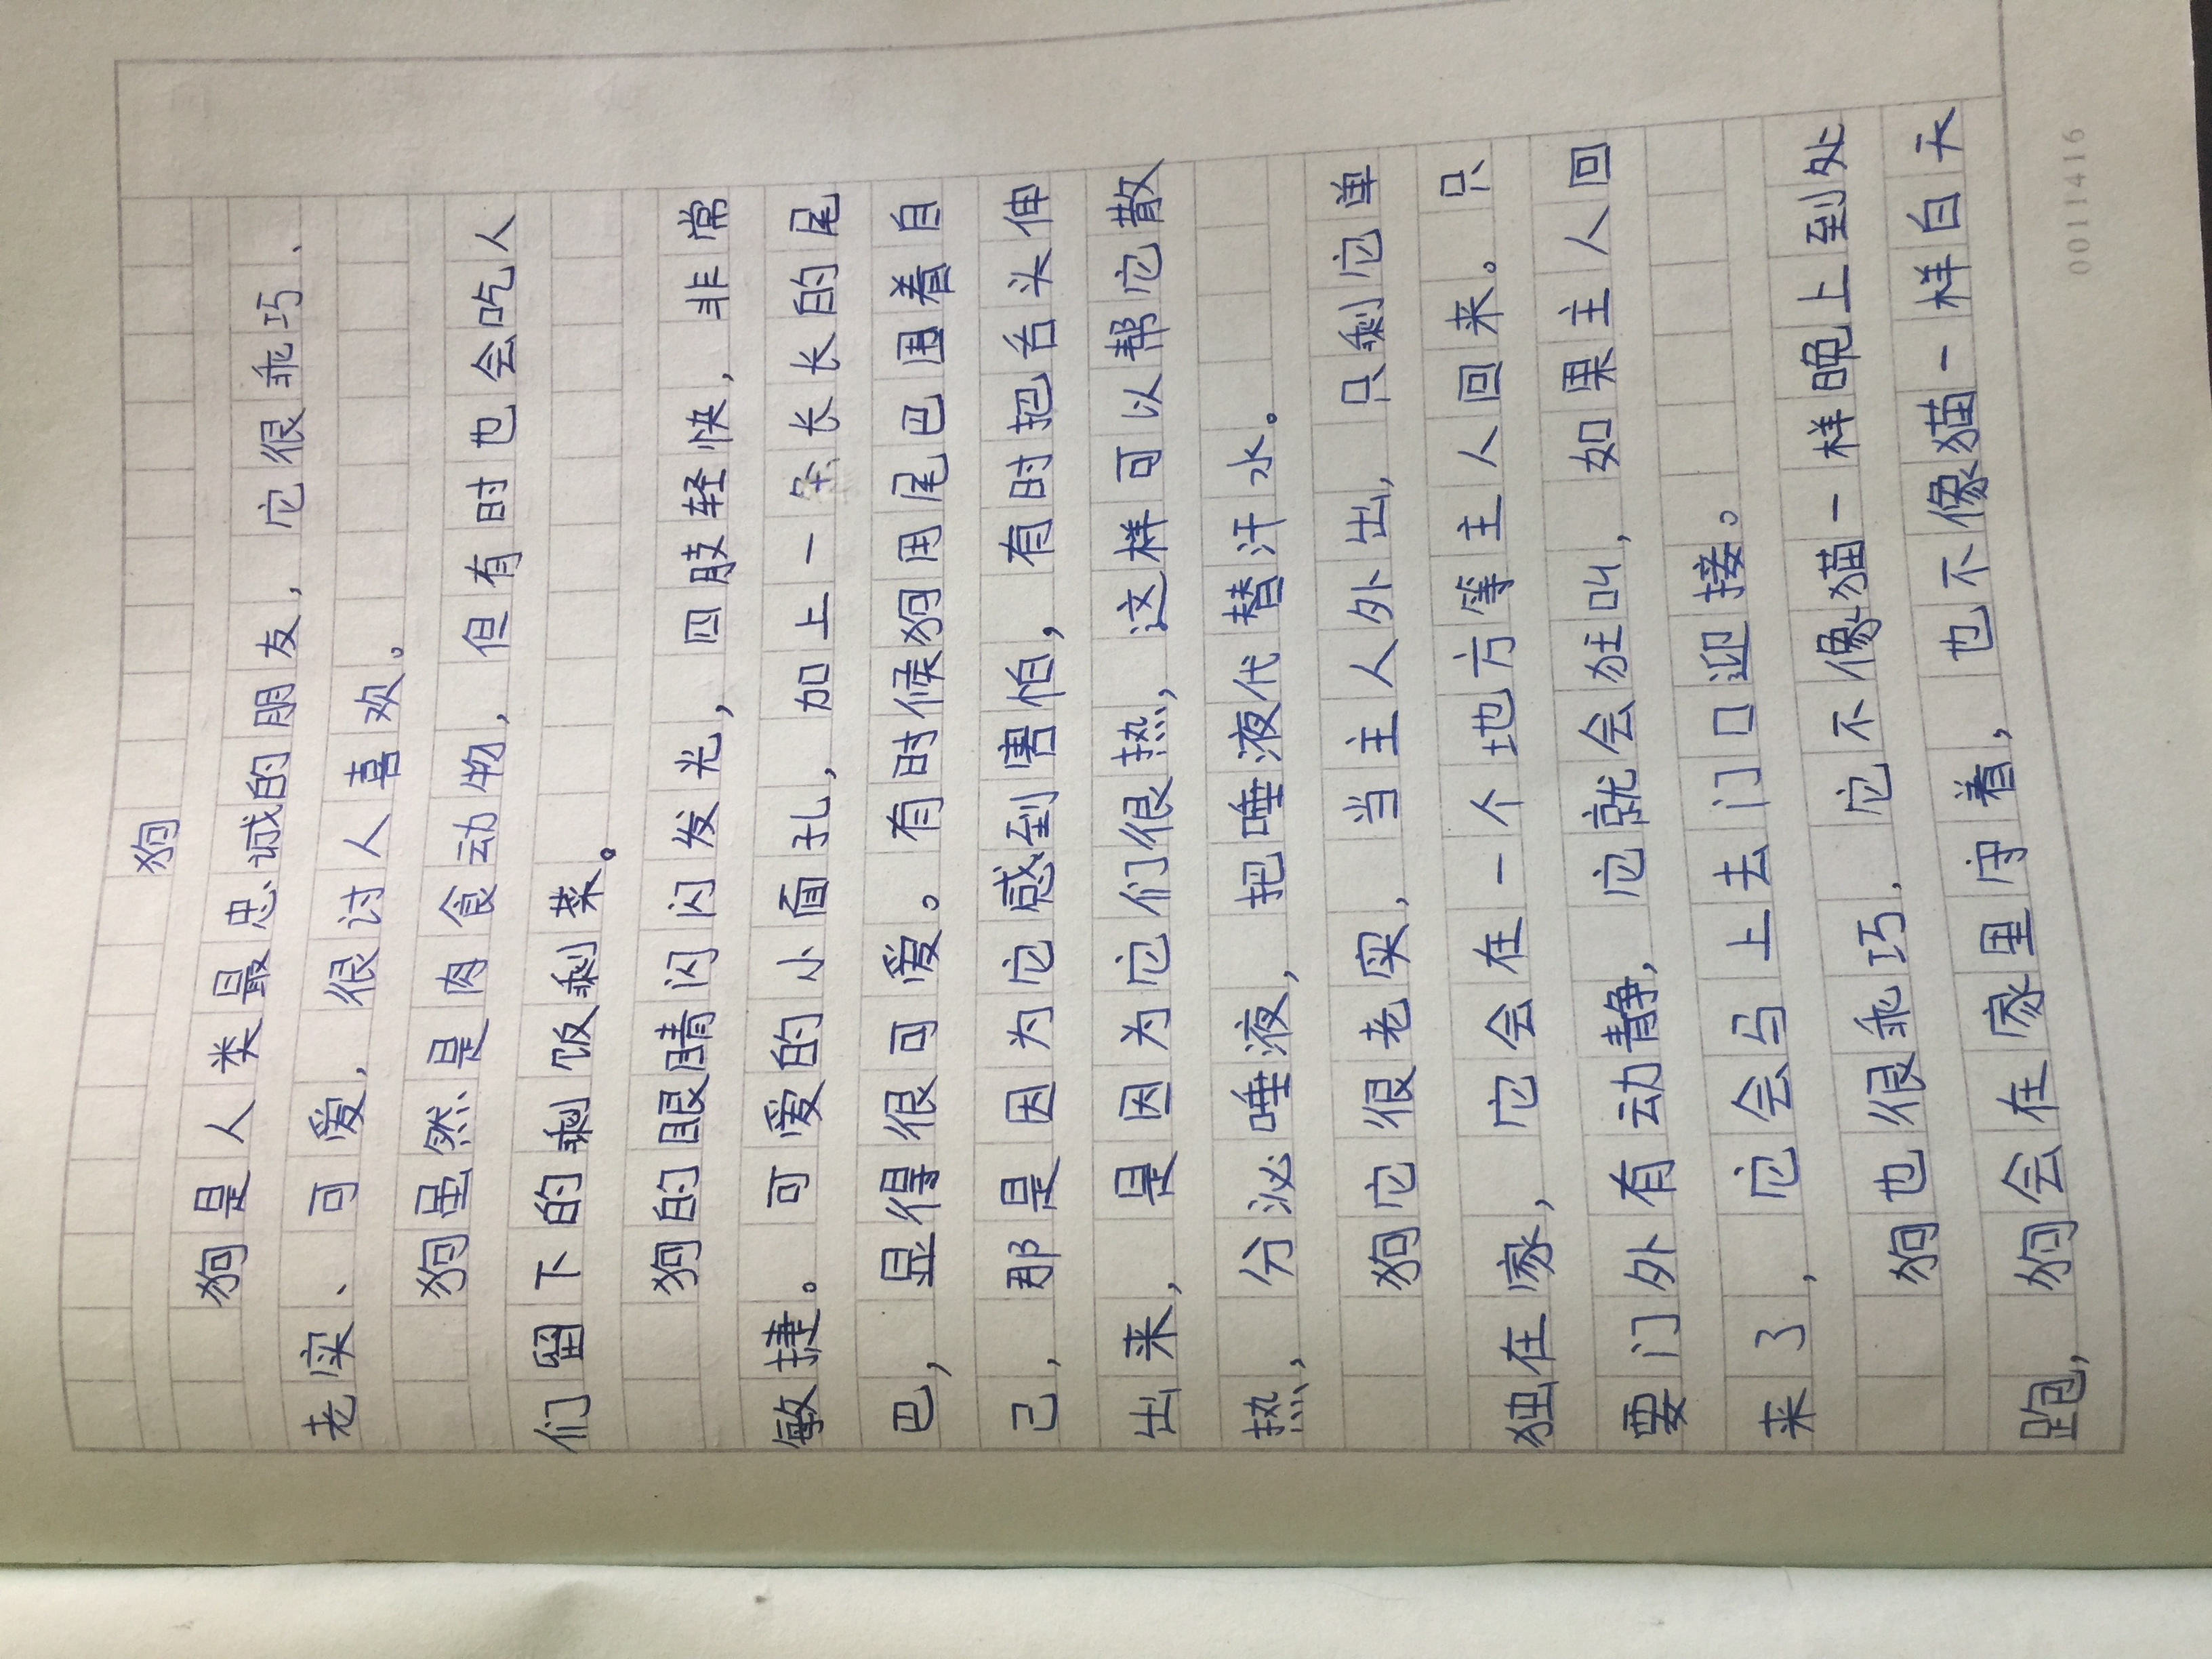 狗
狗是人类最忠诚的朋友，它很乖巧、
老实、可爱，很讨人喜欢。
狗虽然是肉食动物，但有时也会吃人
们留下的剩饭剩菜。
狗的眼睛闪闪发光，四肢轻快，非常
敏捷。可爱的小面孔，加上一条长长的尾
巴，显得很可爱。有时候狗用尾巴围着自
己，那是因为它感到害怕，有时把舌头伸
出来，是因为它们很热，这样可以帮它散
热，分泌唾液，把唾液代替汗水。
狗它很老实，当主人外出，只剩它单
独在家，它会在一个地方等主人回来。只
要门外有动静，它就会狂叫，如果主人回
来了，它会马上去门口迎接。
狗也很乖巧，它不像猫一样晚上到处
跑，狗会在家里守着，也不像猫一样白天
0011416